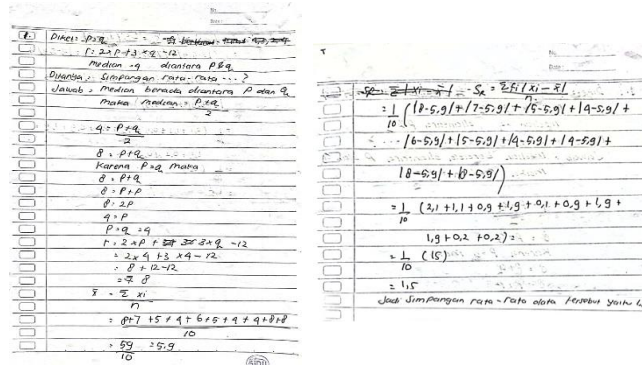 No.
Date:
1. Diket: P=q
r = 2×P + 3×q -12
median = 4 diantara P & q
Ditanya: Simpangan rata-rata ...?
Jawab: Median berada diantara P dan q
maka median = P+q
2
4 = P+q
2
8 = P+q
Karena P=q maka
8 = P+q
8 = P+P
8 = 2P
4 = P
P=q=4
r = 2×P + 3×q -12
= 2×4 +3 ×4 - 12
= 8 + 12-12
= 8
x̄ = Σ xi
n
= 8+7+5+4+6+5+4+4+8+8
10
= 59 = 5,9
10
No.
Date:
Sx = Σfi |xi - x̄|
n
= 1 (|8-5,9| + |7-5,9| + |5-5,9| + |4-5,9| +
10
|6-5,9| + |5-5,9| + |4-5,9| + |4-5,9| +
|8-5,9| + |8-5,9|)
= 1 (2,1 + 1,1 + 0,9 + 1,9 + 0,1 + 0,9 + 1,9 +
10
1,9 + 0,2 + 0,2) =
= 1 (15)
10
= 1,5
Jadi Simpangan rata-rata data tersebut yaitu 1,